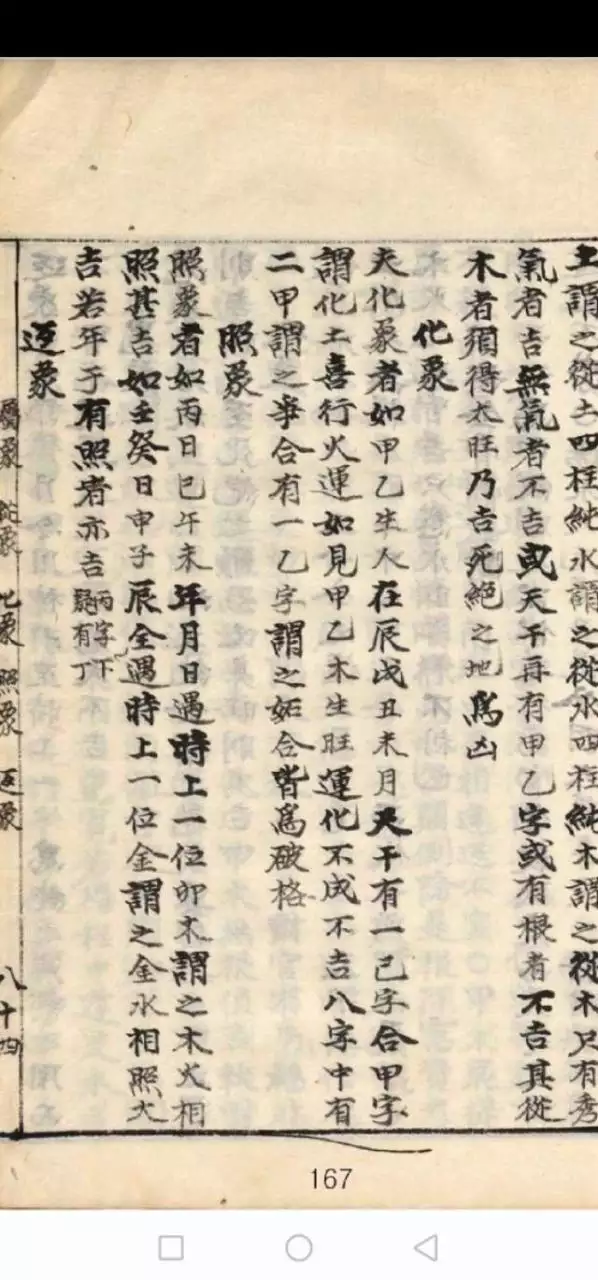 土謂之從土四柱純水謂之從水四柱純木謂之從木只有秀
氣者吉無氣者不吉或天干再有甲乙字或有根者不吉其從
木者須得太旺乃吉死絕之地爲凶
化象
夫化象者如甲乙生人在辰戌丑未月天干有一己字合甲字
謂化土喜行火運如見甲乙木生旺運化不成不吉八字中有
二甲謂之爭合有一乙字謂之妬合皆爲破格
照象
照象者如丙日巳午未年月日遇時上一位卯木謂之木火相
照甚吉如壬癸日申子辰全遇時上一位金謂之金水相照大
吉若年干有照者亦吉丙字下
疑有丁
返象
屬象 從象 化象 照象 返象 八十四
167